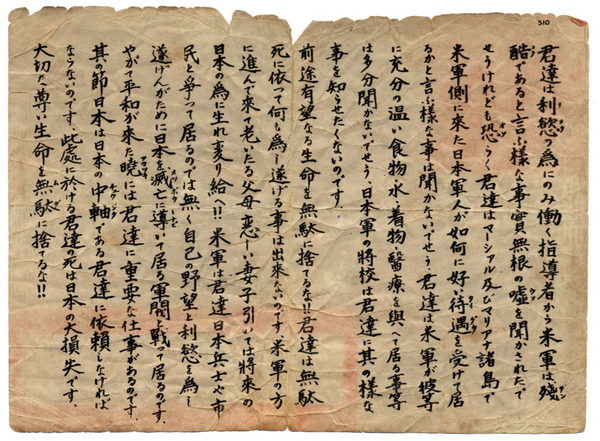 510
君達は利慾の為にのみ働く指導者から米軍は殘
酷であると言ふ樣な事實無根の噓を聞かされたで
せうけれども恐らく君達はマーシアル及びマリアナ諸島で
米軍側に来た日本軍人が如何に好い待遇を受けて居
るかと言ふ樣な事は聞かないでせう君達は米軍が彼等
に充分の温い食物、水、着物、醫療を與へて居る事等
は多分聞かないでせう、日本軍の將校は君達に其の樣な
事を知らせたくないのです。
前途有望なる生命を無駄に捨てるな!!君達は無駄
死に依って何も為し遂げる事は出來ないのです。米軍の方
に進んで來て老いたる父母、恋しい妻子引いては將來の
日本の為に生れ変り給へ!!米軍は君達日本兵士や市
民と爭って居るのでは無く自己の野望と利慾を為し
遂げんがために日本を滅亡に導いて居る軍閥と戰って居るのです、
やがて平和が來た曉には君達に重要な仕事があるのです、
其の節日本は日本の中軸である君達に依頼しなければ
ならないのです、此処に於ける君達の死は日本の大損失です、
大切な尊い生命を無駄に捨てるな!!